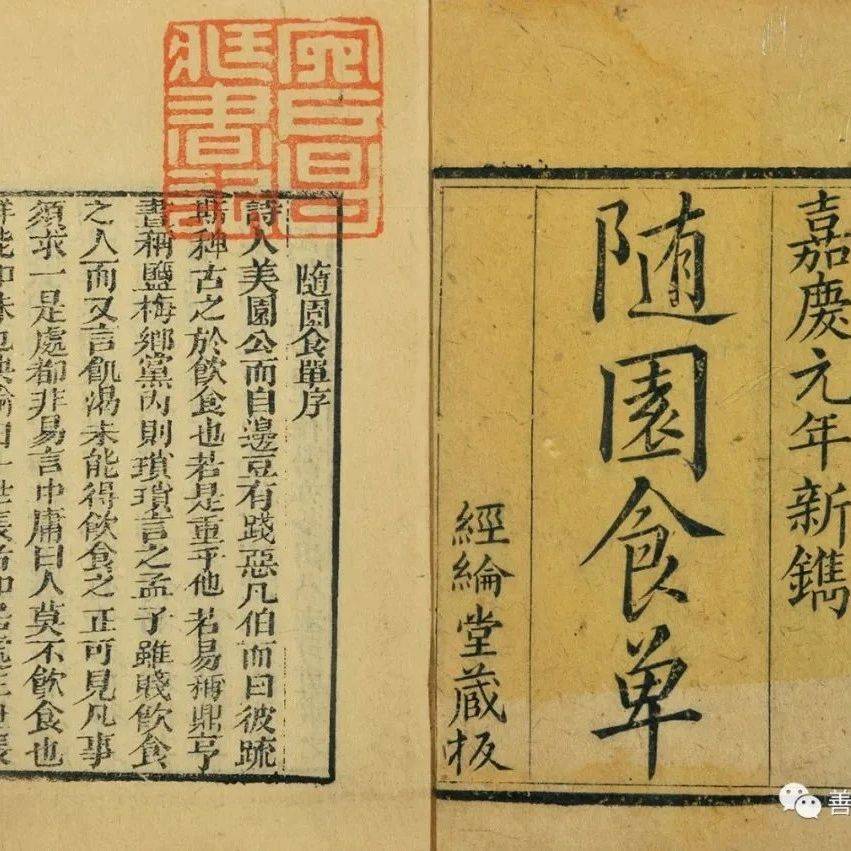 嘉慶元年新鐫
随園食单
經綸堂藏板
隨園食單序
詩人美園公而自邊豆有踐惡凡伯而曰彼疏
斯稗古之於飲食也若是重乎他若易稱鼎亨
書稱鹽梅鄉黨內則瑣瑣言之孟子雖賤飲食
之人而又言飢渴未能得飲食之正可見凡事
須求一是處都非易言中庸曰人莫不飲食也
鮮能知味也典論曰一世長者知居處三世長
善